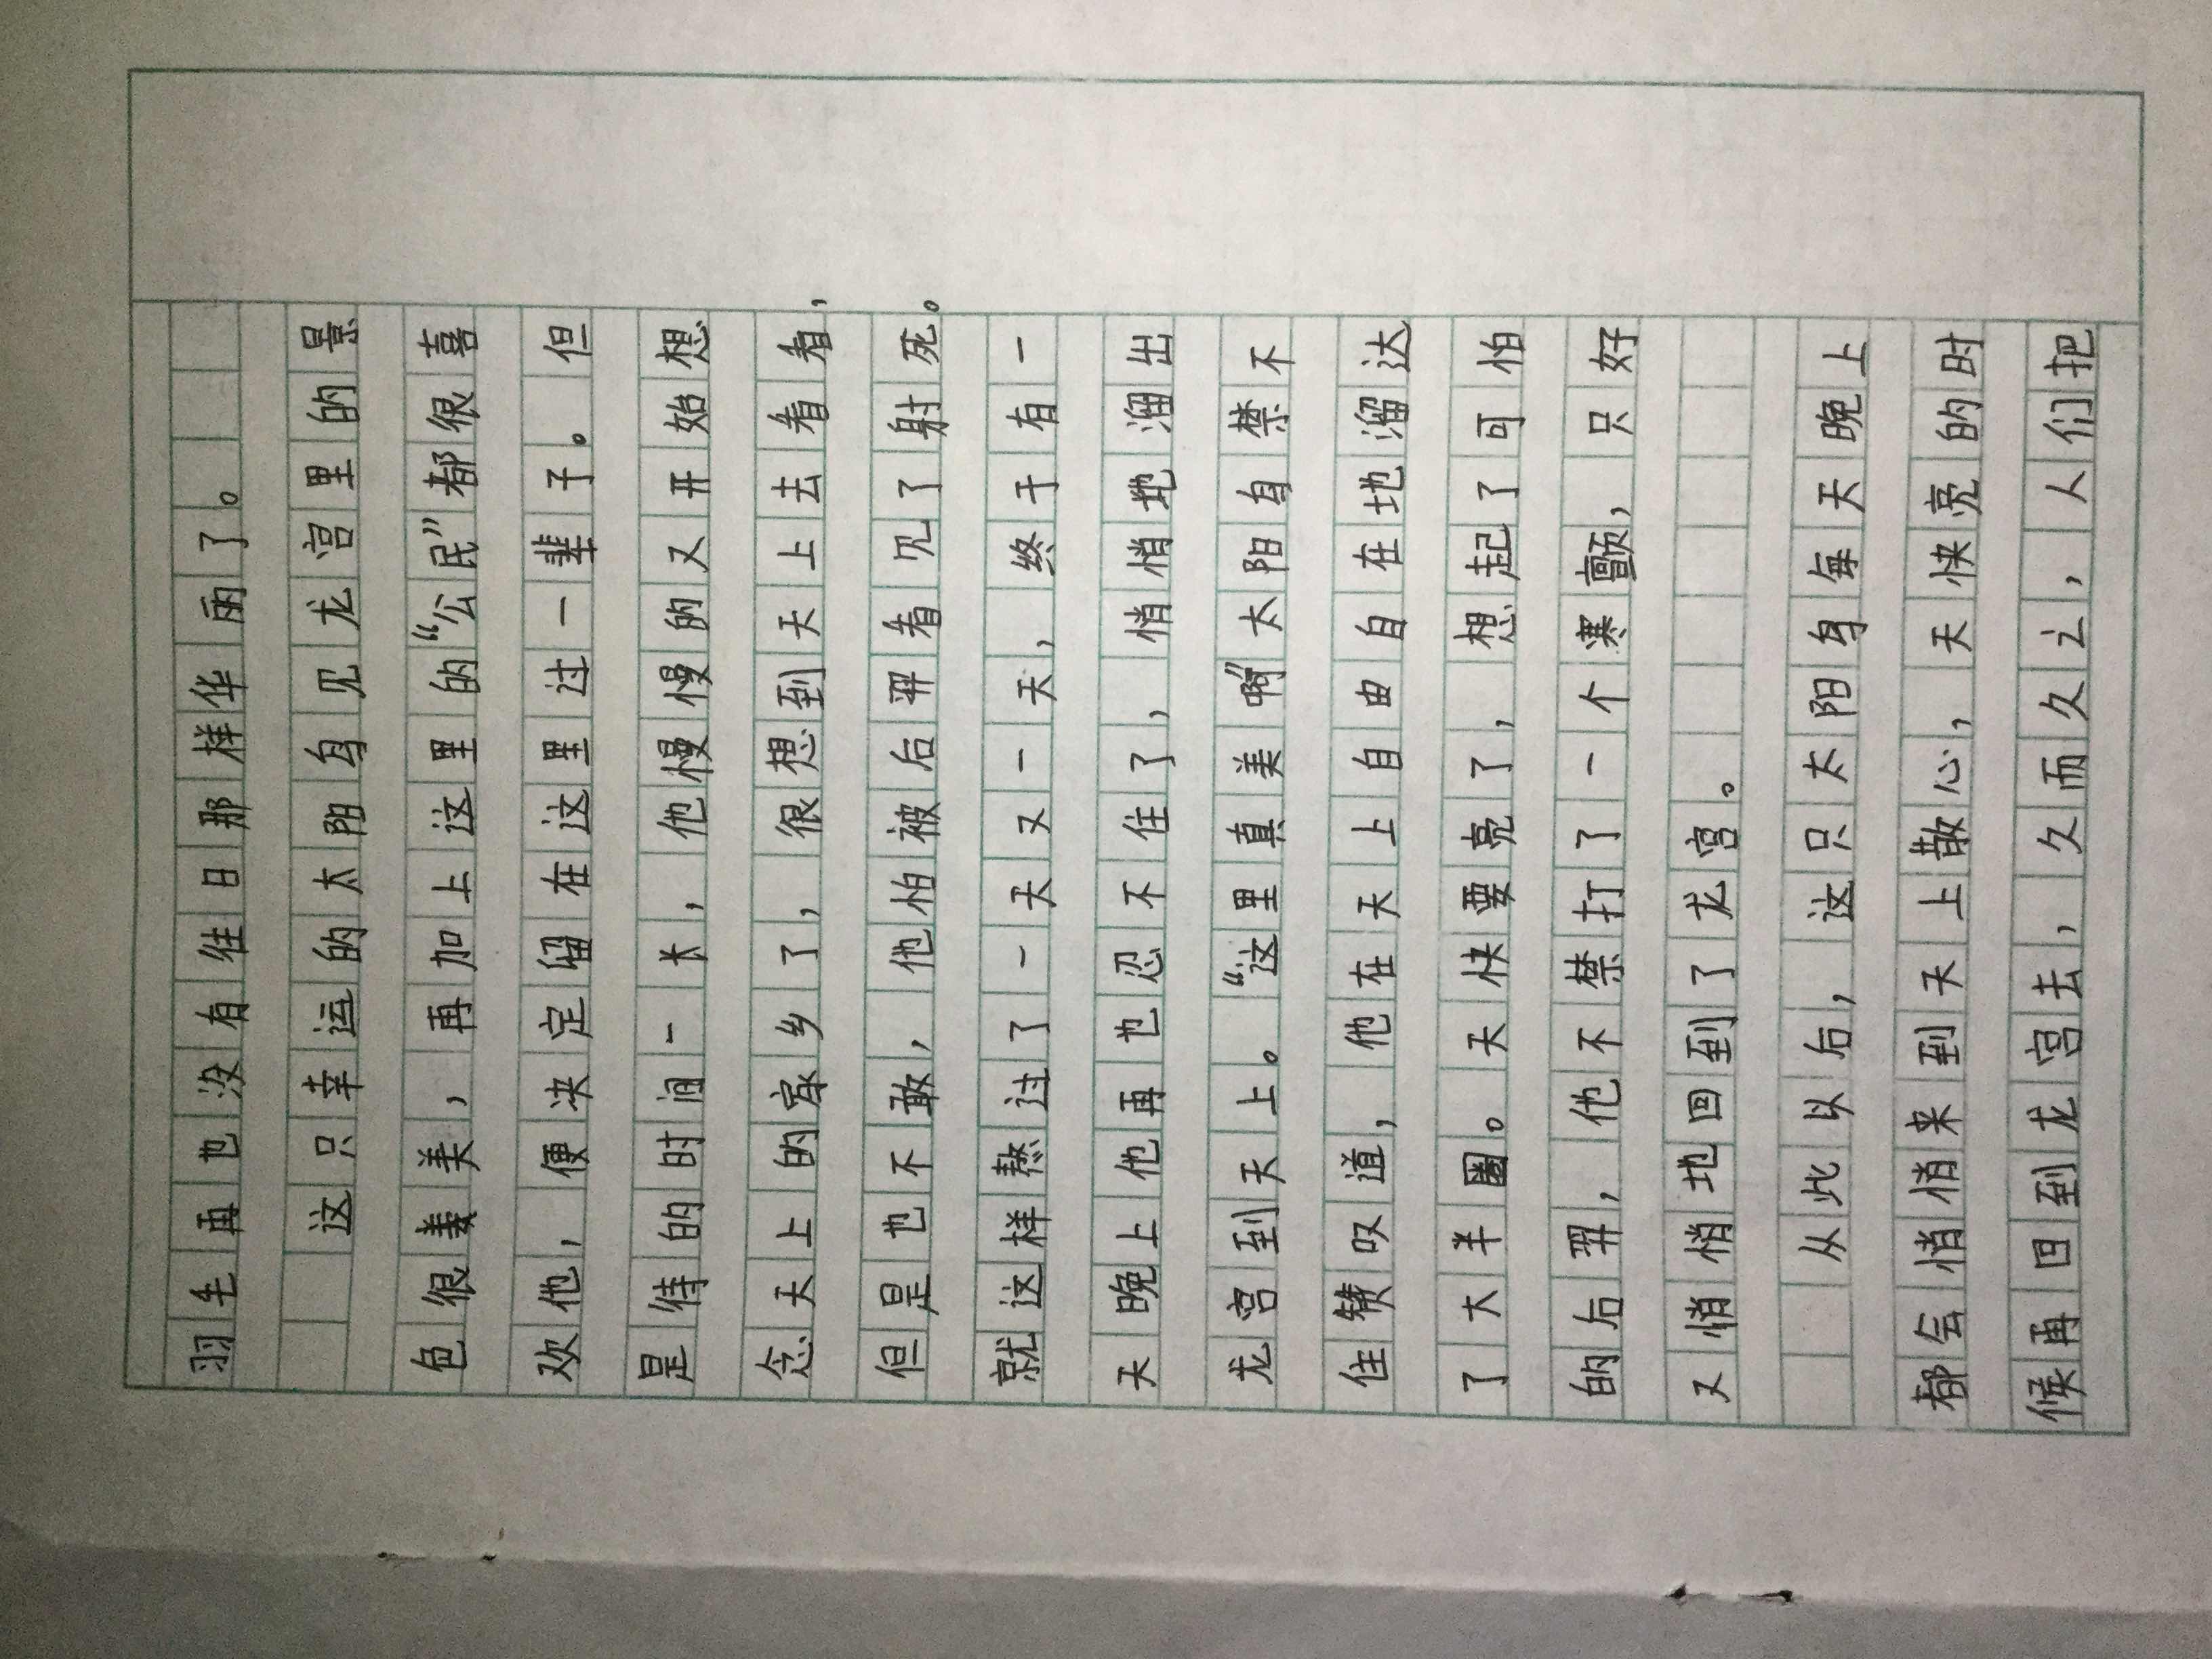 羽毛再也没有往日那样华丽了。
这只幸运的太阳鸟见龙宫里的景
色很美美，再加上这里的“公民”都很喜
欢他，便决定留在这里过一辈子。但
是待的时间一长，他慢慢的又开始想
念天上的家乡了，很想到天上去看看，
但是也不敢，他怕被后羿看见了射死。
就这样熬过了一天又一天，终于有一
天晚上他再也忍不住了，悄悄地溜出
龙宫到天上。“这里真美啊”太阳鸟禁不
住赞叹道，他在天上自由自在地溜达
了大半圈。天快要亮了，想起了可怕
的后羿，他不禁打了一个寒颤，只好
又悄悄地回到了龙宫。
从此以后，这只太阳鸟每天晚上
都会悄悄来到天上散心，天快亮的时
候再回到龙宫去，久而久之，人们把